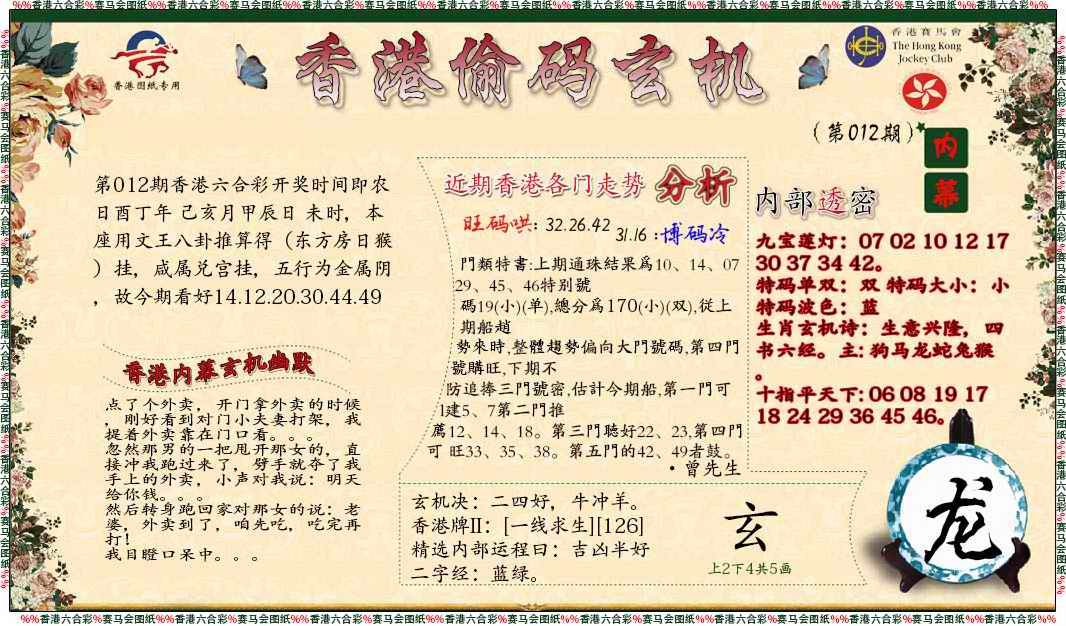 %%香港六合彩%赛马会图纸%%香港六合彩%赛马会图纸%%香港六合彩%赛马会图纸%%香港六合彩%赛马会图纸%%香港六合彩%赛马会图纸%%香港六合彩%赛马会图纸%%香港六合彩%%
香港图纸专用
香港偷码玄机
香港賽馬會
The Hong Kong
Jockey Club
（第012期）
内幕
第012期香港六合彩开奖时间即农
日酉丁年 己亥月甲辰日 未时，本
座用文王八卦推算得（东方房日猴
）挂，咸属兑宫挂，五行为金属阴
，故今期看好14.12.20.30.44.49
香港内幕玄机幽默
点了个外卖，开门拿外卖的时候
，刚好看到对门小夫妻打架，我
提着外卖靠在门口看。。。
忽然那男的一把甩开那女的，直
接冲我跑过来了，劈手就夺了我
手上的外卖，小声对我说：明天
给你钱。。。
然后转身跑回家对那女的说：老
婆，外卖到了，咱先吃，吃完再
打！
我目瞪口呆中。。。
近期香港各门走势 分析
旺码哄: 32.26.42
31.16 :博码冷
門類特書:上期通珠結果爲10、14、07
29、45、46特别號
碼19(小)(单),總分爲170(小)(双),從上
期船趙
勢來時,整體趨勢偏向大門號碼,第四門
號購旺,下期不
防追捧三門號密,估計今期船,第一門可
1建5、7第二門推
薦12、14、18。第三門聽好22、23,第四門
可 旺33、35、38。第五門的42、49者鼓。
·曾先生
玄机决：二四好，牛冲羊。
香港牌II：[一线求生][126]
精选内部运程曰：吉凶半好
二字经：蓝绿。
玄
上2下4共5画
内部透密
九宝莲灯：07 02 10 12 17
30 37 34 42。
特码单双：双 特码大小：小
特码波色：蓝
生肖玄机诗：生意兴隆，四
书六经。主: 狗马龙蛇兔猴
。
十指平天下: 06 08 19 17
18 24 29 36 45 46。
龙
%%香港六合彩%赛马会图纸%%香港六合彩%赛马会图纸%%香港六合彩%赛马会图纸%%香港六合彩%赛马会图纸%%香港六合彩%赛马会图纸%%香港六合彩%赛马会图纸%%香港六合彩%%